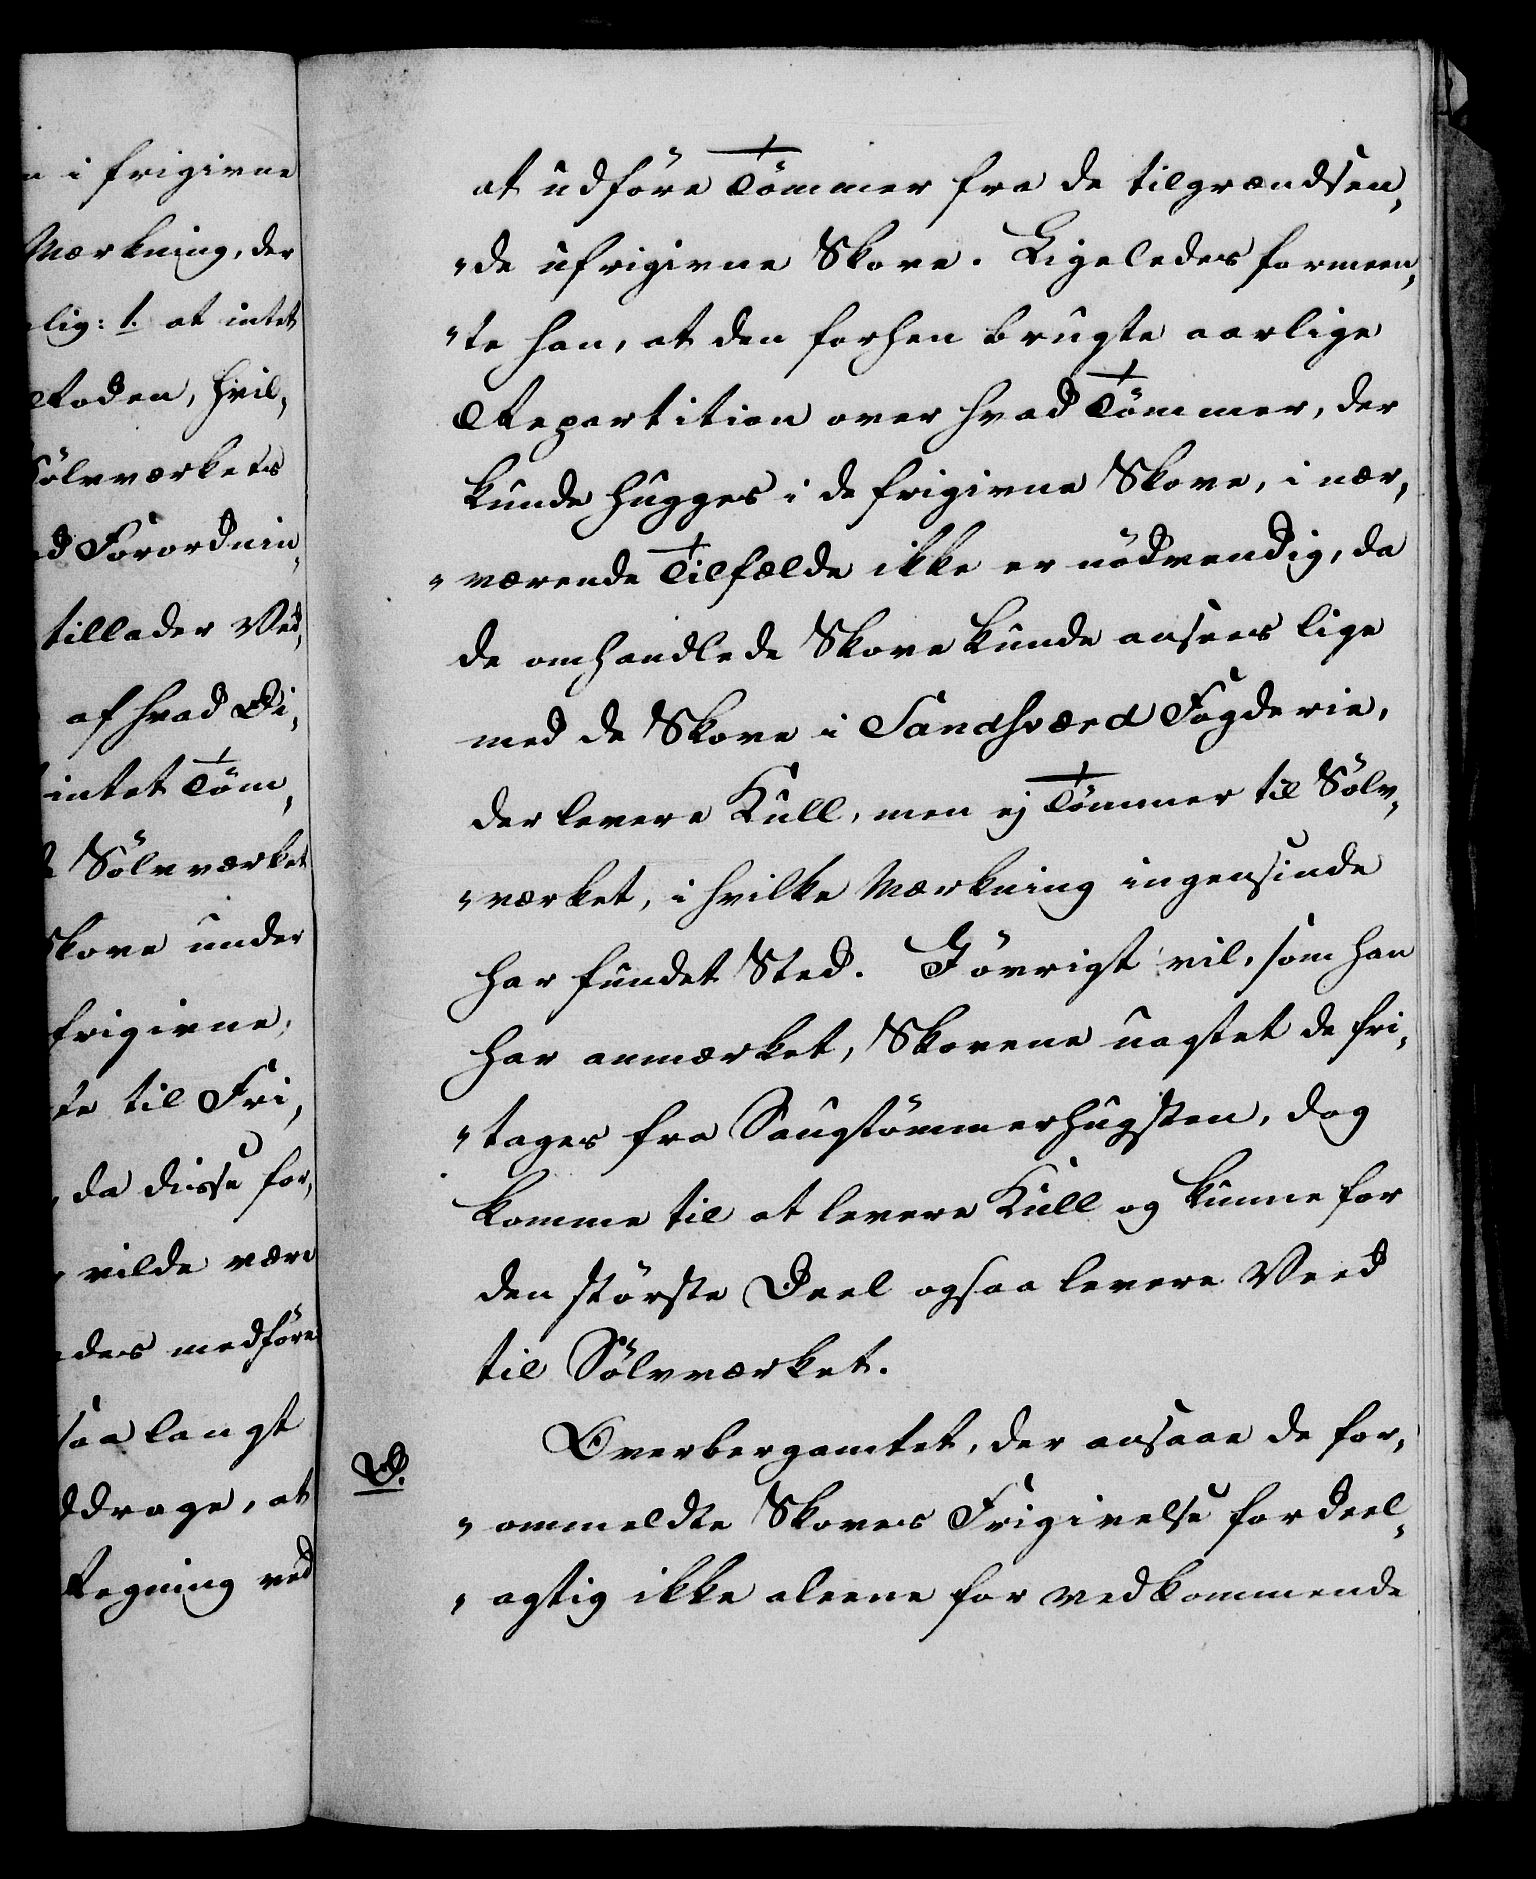 i frigivne
Mærkning, der
lig: 1. at intet
Roden, hvil,
Sölvværkets
Forordnin,
tillader Ved,
af hvad Di,
intet Töm,
Sölvværket
Skove under
frigivne,
te til Fri,
da disse for,
vilde være
des medföre
saa langt
ddrage, at
Regning ved
at udföre Tömmer fra de tilgrændsen,
"de ufrigivne Skove. Ligeledes formeen,
"te han, at den forhen brugte aarlige
Repartition over hvad Tömmer, der
kunde hugges i de frigivne Skove, i nær,
"værende Tilfælde ikke er nödvendig, da
de omhandlede Skove kunde ansees lige
med de Skove i Sandsværd Fogderie,
der levere Kull, men ej Tömmer til Sölv,
"værket, i hvilke Mærkning ingensinde
har fundet Sted. Jövrigt vil, som han
har anmærket, Skovene uagtet de fri,
"tages fra Saugtömmerhugsten, dog
komme til at levere Kull og kunne for
den störste Deel ogsaa levere Veed
til Sölvværket.
D.
Overbergamtet, der ansaae de for,
"ommeldte Skoves Frigivelse fordeel,
"agtig ikke aleene for vedkommende